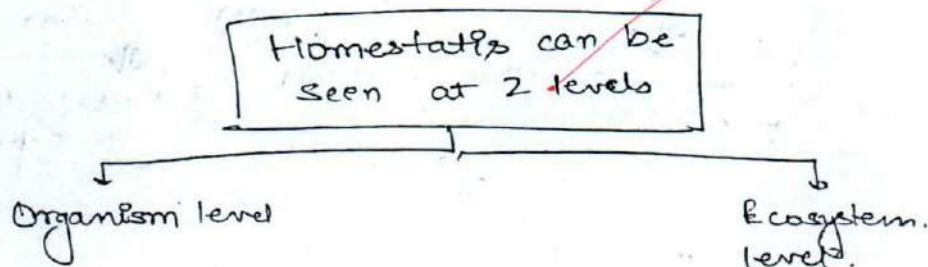 Homestatis can be
seen at 2 levels
Organism level
Ecosystem.
level.